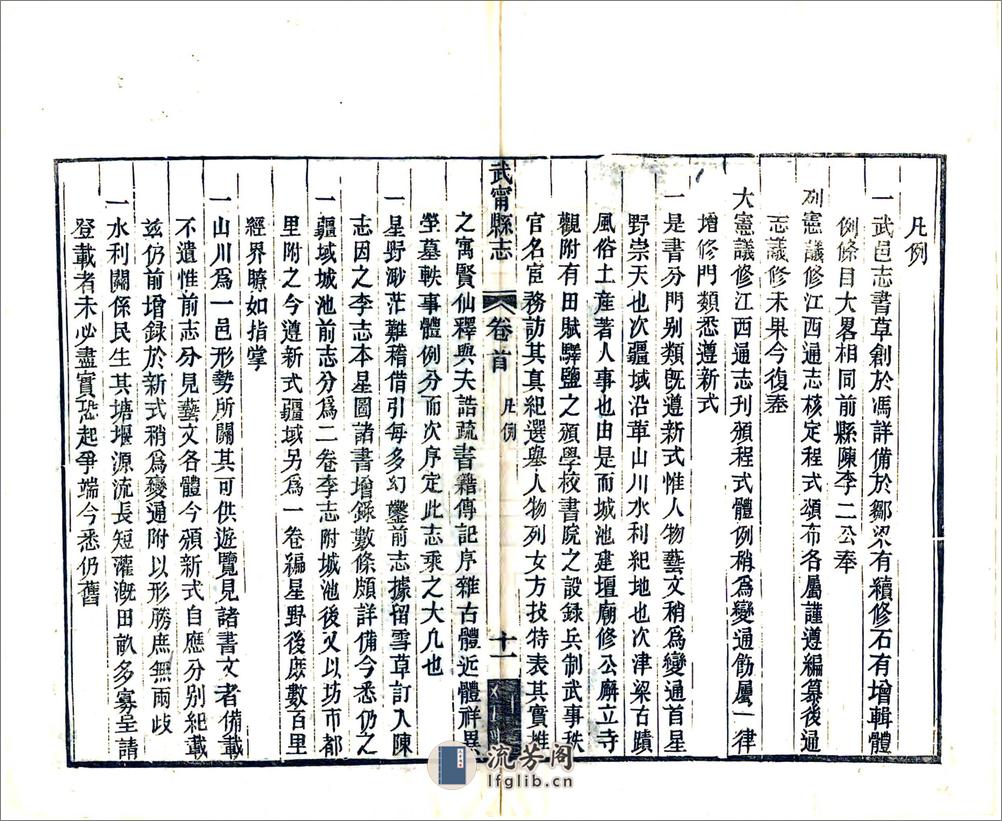 凡例
一武邑志書草創於馮詳備於鄒梁有續修石有增輯體
例條目大畧相同前縣陳李二公奉
列憲議修江西通志核定程式頒布各屬謹遵編纂後通
志議修未果今復奉
大憲議修江西通志刊頒程式體例稍爲變通飭屬一律
增修門類悉遵新式
一是書分門別類旣遵新式惟人物藝文稍爲變通首星
野崇天也次疆域沿革山川水利紀地也次津梁古蹟
風俗土産著人事也由是而城池建壇廟修公廨立寺
觀附有田賦驛鹽之頒學校書院之設錄兵制武事秩
官名宦務訪其真紀選舉人物列女方技特表其實推
武甯縣志
卷首
凡例
十一
之寓賢仙釋與夫誥疏書籍傳記序雜古體近體祥異
塋墓軼事體例分而次序定此志乘之大凡也
一星野渺茫難稽借引每多幻鑿前志據留雪草訂入陳
志因之李志本星圖諸書增錄數條頗詳備今悉仍之
一疆域城池前志分爲二卷李志附城池後又以坊市都
里附之今遵新式疆域另爲一卷編星野後庶數百里
經界瞭如指掌
一山川爲一邑形勢所關其可供遊覽見諸書文者備載
不遺惟前志分見藝文各體今頒新式自應分別紀載
茲仍前增録於新式稍爲變通附以形勝庶無兩歧
一水利關係民生其塘堰源流長短灌漑田畝多寡呈請
登載者未必盡實恐起爭端今悉仍舊
流芳阁
lfglib.cn